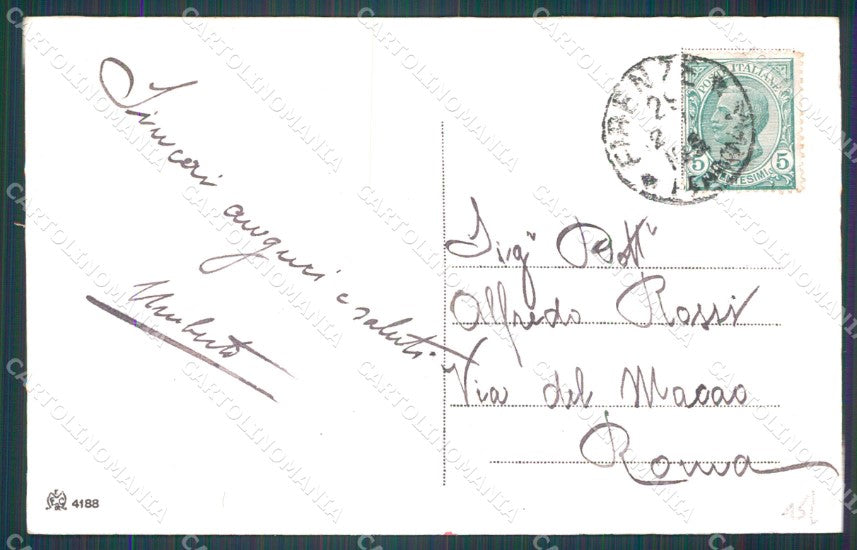 Sinceri auguri e saluti
Umberto
FIRENZE
POSTE ITALIANE
5 CENTESIMI 5
Sigr Dott
Alfredo Rossi
Via del Macao
Roma
4188
15
CARTOLINOMANIA